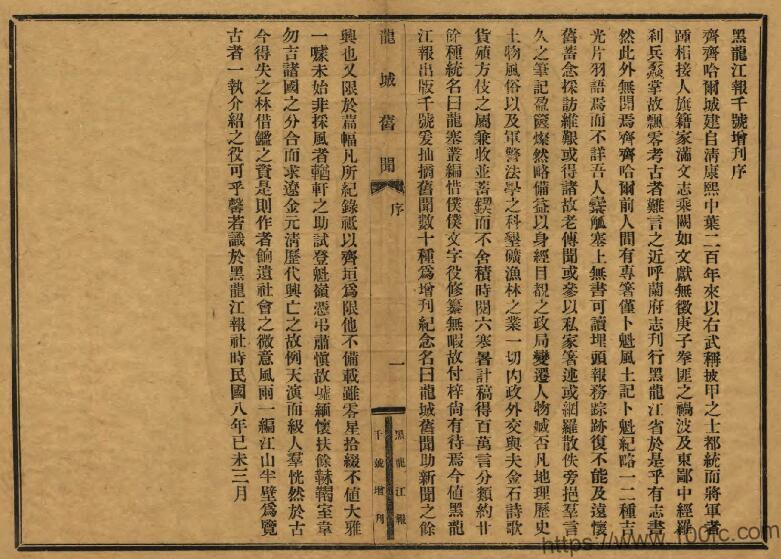 黑龍江報千號增刊序
齊齊哈爾城建自淸康熙中葉二百年來以右武稱披甲之士都統而將軍者
踵相接人旗籍家滿文志乘闕如文獻無徵庚子拳匪之禍波及東鄙中經羅
刹兵燹掌故飄零考古者難言之近呼蘭府志刊行黑龍江省於是乎有志書
然此外無聞焉齊齊哈爾前人間有專箸僅卜魁風土記卜魁紀略一二種吉
光片羽語焉而不詳吾人橐觚塞上無書可讀埋頭報務踪跡復不能及遠懷
舊蓄念採訪維艱或得諸故老傳聞或參以私家箸述或網羅散佚旁挹羣言
久之筆記盈篋燦然略備益以身經目覩之政局變遷人物臧否凡地理歷史
土物風俗以及軍警法學之科墾礦漁林之業一切內政外交與夫金石詩歌
貨殖方伎之屬兼收並蓄鍥而不舍積時閱六寒暑計稿得百萬言分類約廿
餘種統名曰龍塞叢編惜僕僕文字役修纂無暇故付梓尙有待焉今値黑龍
江報出版千號爰抽摘舊聞數十種爲增刊紀念名曰龍城舊聞助新聞之餘
龍城舊聞
序
一
黑龍江報
千號增刊
興也又限於篇幅凡所紀錄祗以齊垣爲限他不備載雖零星拾綴不値大雅
一噱未始非採風者輶軒之助試登魁嶺憑弔肅愼故墟緬懷扶餘靺鞨室韋
勿吉諸國之分合而求遼金元淸歷代興亡之故例天演而級人羣恍然於古
今得失之林借鑑之資是則作者餉遺社會之微意風雨一編江山半壁爲覽
古者一執介紹之役可乎馨若識於黑龍江報社時民國八年已未三月
https://www.100fc.com